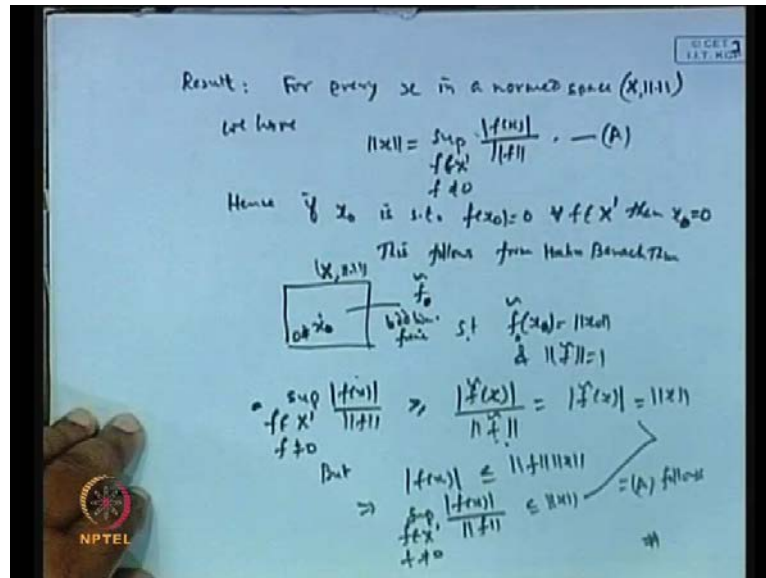 © CET
I.I.T. KGP
2
Result: For every x in a normed space (X, ||.||)
we have
||x|| = sup |f(x)| / ||f|| . — (A)
f ∈ X'
f ≠ 0
Hence if x₀ is s.t. f(x₀) = 0 ∀ f ∈ X' then x₀ = 0
This follows from Hahn Banach Thm
(X, ||.||)
0 ≠ x₀
f̃
bdd lin. func s.t f̃(x₀) = ||x₀||
& ||f̃|| = 1
sup |f(x)| / ||f|| ≥ |f̃(x)| / ||f̃|| = |f̃(x)| = ||x||
f ∈ X'
f ≠ 0
But |f(x)| ≤ ||f|| ||x||
⇒ sup |f(x)| / ||f|| ≤ ||x|| ⇒ (A) follows
f ∈ X'
f ≠ 0
NPTEL